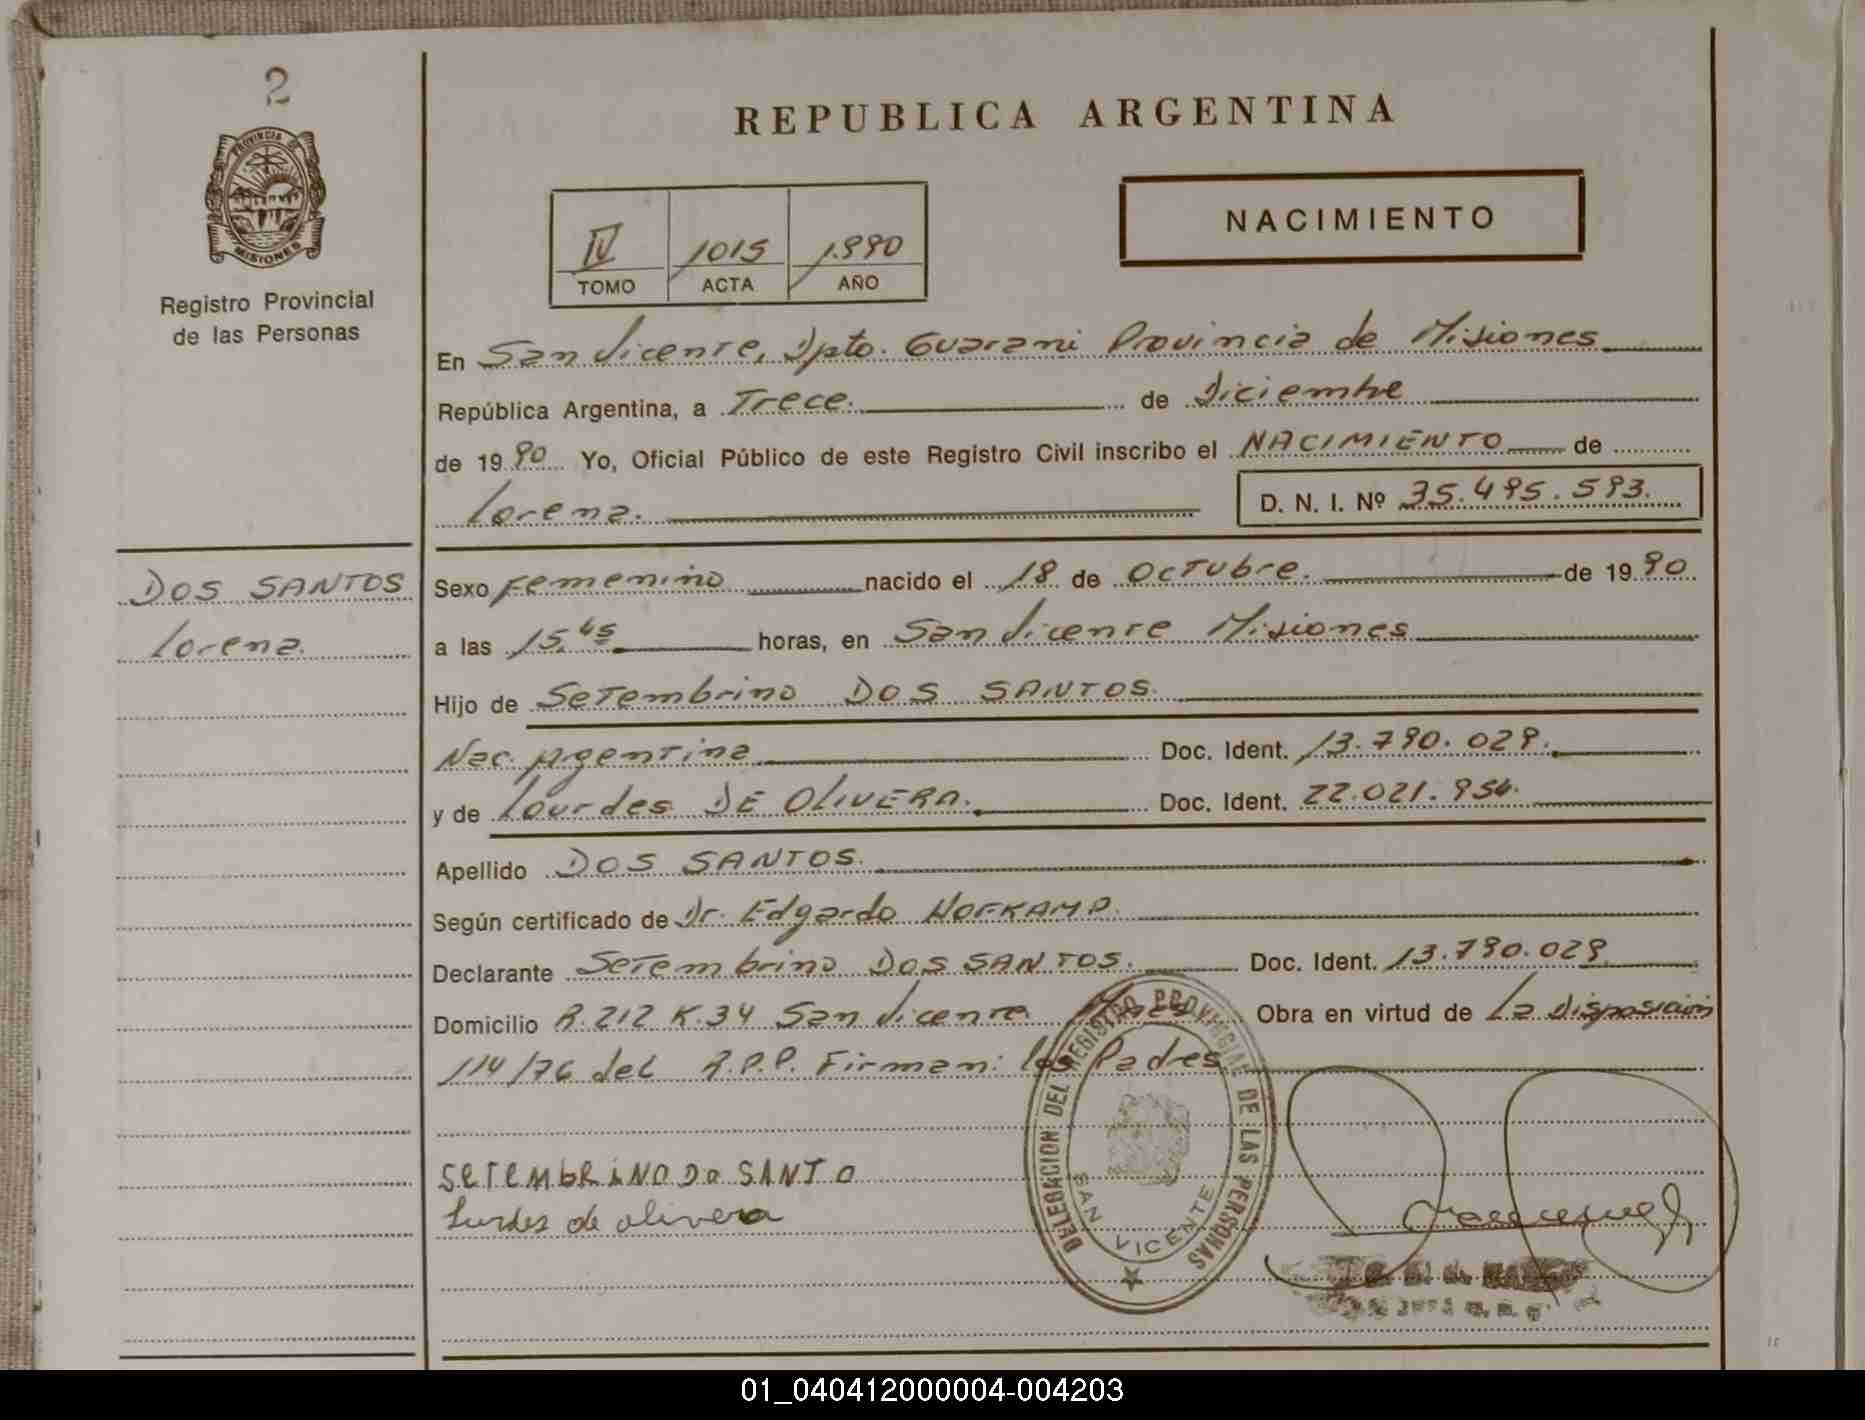 2
PROVINCIA DE
MISIONES
Registro Provincial
de las Personas
REPUBLICA ARGENTINA
NACIMIENTO
IV 1015 1.990
TOMO ACTA AÑO
En San Vicente, Dpto. Guarani Provincia de Misiones
República Argentina, a Trece. de Diciembre
de 19 90 Yo, Oficial Público de este Registro Civil inscribo el NACIMIENTO de
Lorena. D. N. I. Nº 35.495.593.
DOS SANTOS
Lorena.
Sexo Femenino nacido el 18 de Octubre. de 19 90
a las 15,45 horas, en San Vicente Misiones
Hijo de Setembrino DOS SANTOS.
Nac. Argentina Doc. Ident. 13.790.029.
y de Lourdes DE OLIVERA. Doc. Ident. 22.021.954.
Apellido DOS SANTOS.
Según certificado de Dr. Edgardo HOFKAMP.
Declarante Setembrino DOS SANTOS. Doc. Ident. 13.790.029
Domicilio R.212 K.34 San Vicente Mnes Obra en virtud de La Disposición
114/76 del R.P.P. Firman: los Padres
SETEMBRINO DO SANTO
Lurdes de olivera
DELEGACION DEL REGISTRO PROVINCIAL DE LAS PERSONAS
SAN VICENTE
01_040412000004-004203